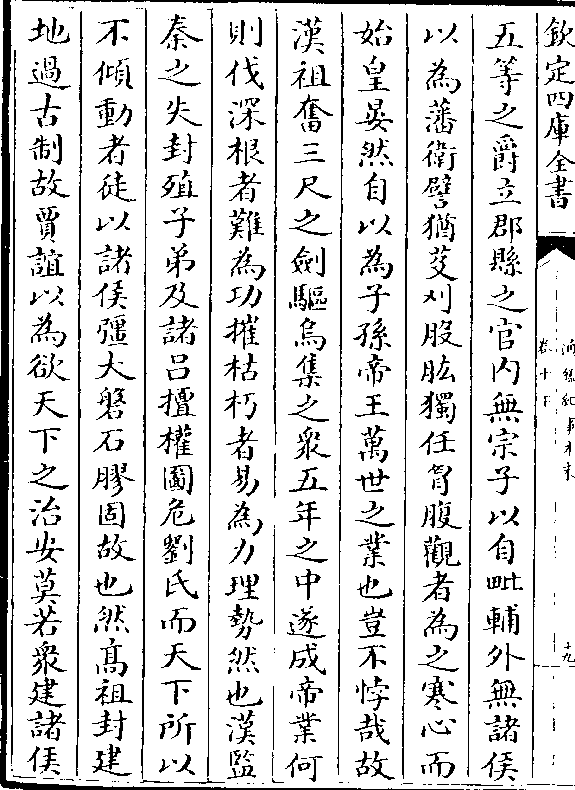 欽定四庫全書
五等之爵立郡縣之官内無宗子以自毗輔外無諸侯
以為藩衛譬猶芟刈股肱獨任胷腹觀者為之寒心而
始皇晏然自以為子孫帝王萬世之業也豈不悖哉故
漢祖奮三尺之劍驅烏集之衆五年之中遂成帝業何
則伐深根者難為功摧枯朽者易為力理勢然也漢監
秦之失封殖子弟及諸吕擅權圖危劉氏而天下所以
不傾動者徒以諸侯彊大磐石膠固故也然髙祖封建
地過古制故賈誼以為欲天下之治安莫若衆建諸侯
十九